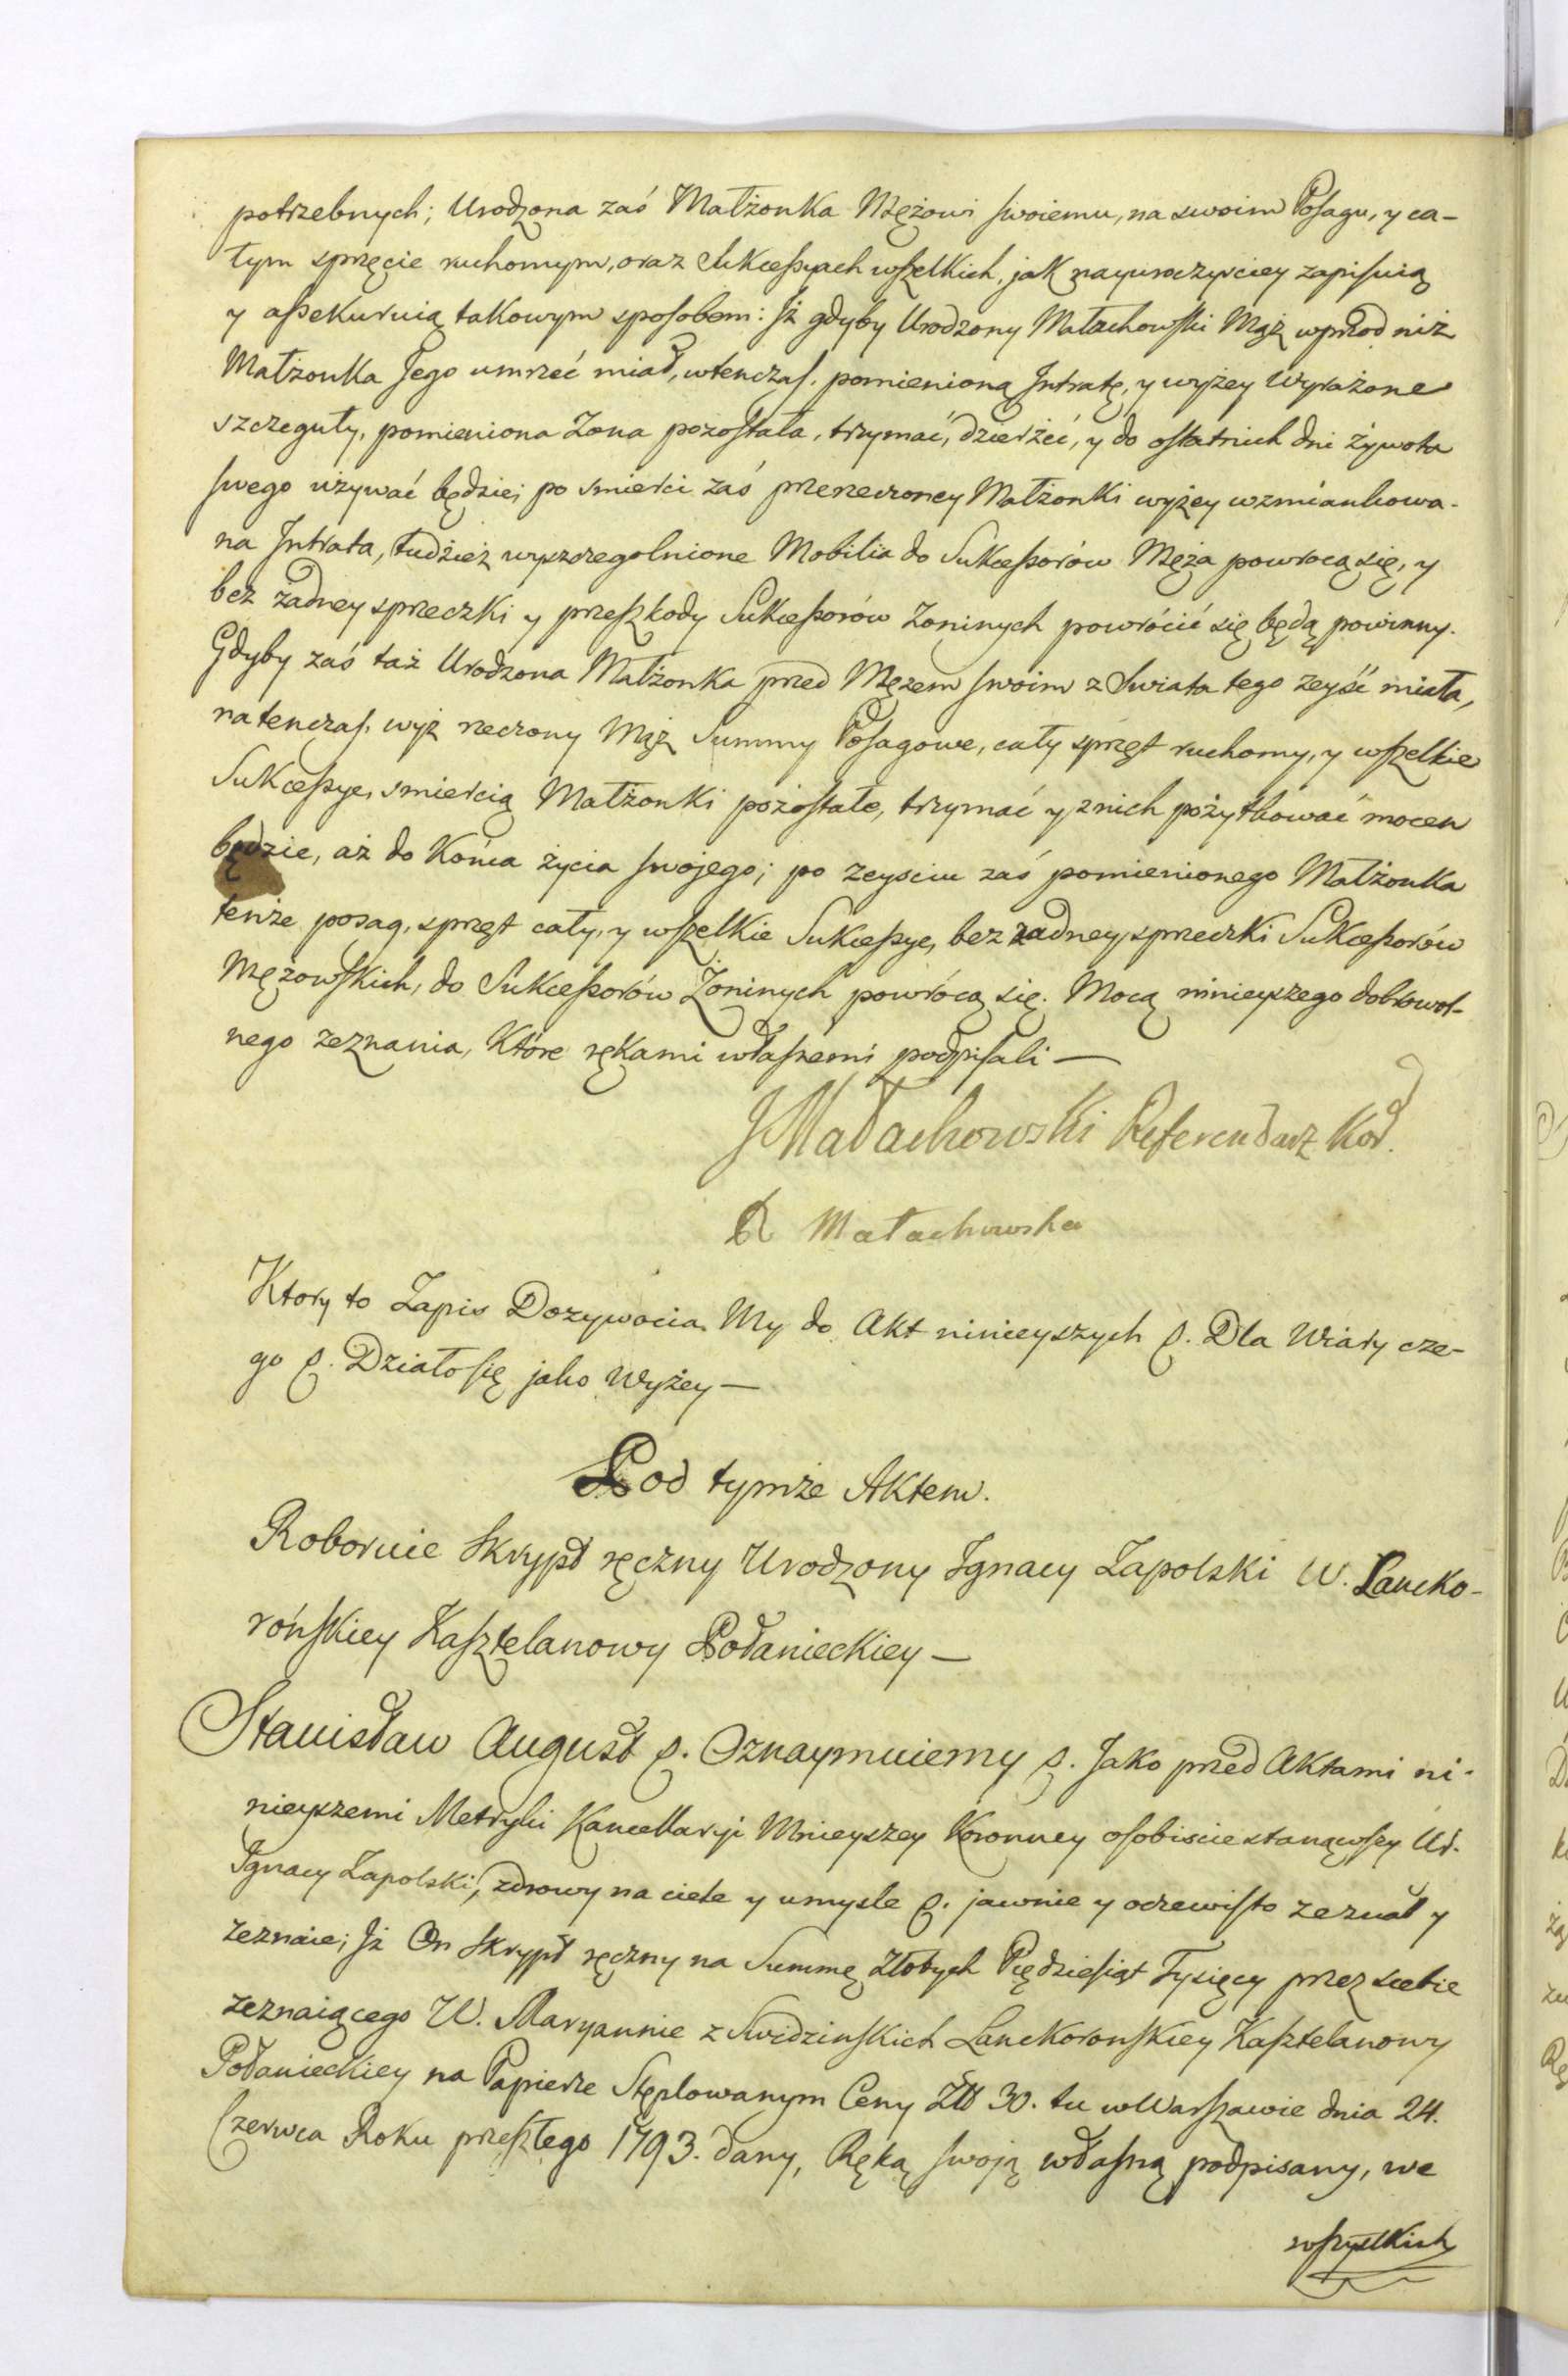 potrzebnych; Urodzona zaś Małżonka Mężowi swoiemu, na swoim Posagu, y ca-
łym sprzęcie ruchomym, oraz Sukcessyach wszelkich, jak nayuroczyściey zapisuią
y assekuruią takowym sposobem: Jż gdyby Urodzony Małachowski Mąż wprzod niż
Małżonka Jego umrzeć miał, wtenczas, pomienioną Jntratę, y wyżey Wyrażone
szczeguły, pomieniona Zona pozostała, trzymać, dzierżeć, y do ostatnich dni żywota
swego używać będzie; po smierci zaś przerzeczoney Małżonki wyżey wzmiankowa-
na Jntrata, tudzież wyszczegolnione Mobilia do Sukcessorów Męża powrocą się, y
bez żadney sprzeczki y przeszkody Sukcessorów Zoninych powrócić się będą powinny.
Gdyby zaś taż Urodzona Małżonka przed Mężem swoim z Swiata tego zeyść miała,
natenczas, wyż rzeczony Mąż Summy Posagowe, cały sprzęt ruchomy, y wszelkie
Sukcessye, smiercią Małżonki pozostałe, trzymać y z nich pożytkować mocen
będzie, aż do Końca życia swojego; po zeysciu zaś pomienionego Małżonka
tenże posag, sprzęt cały, y wszelkie Sukcessye, bez żadney sprzeczki Sukcessorów
Mężowskich, do Sukcessorów Żoninych powrócą się. Mocą ninieyszego dobrowol-
nego zeznania, Które rękami własnemi podpisali —
J Małachowski Referendarz Kor.
R Małachowska
Ktory to Zapis Dozywocia My do Akt ninieyszych p. Dla Wiary cze-
go p. Działo się jako Wyżey —
Pod tymże Aktem.
Roboruie Skrypt ręczny Urodzony Ignacy Zapolski W. Lancko-
rońskiey Kasztelanowy Połanieckiey —
Stanisław August p. Oznaymuiemy p. Jako przed Aktami ni-
nieyszemi Metryki Kancellaryi Mnieyszey Koronney osobiscie stanąwszy Ur.
Ignacy Zapolski, zdrowy na ciele y umysle p. jawnie y oczewisto zeznał y
zeznaie; Jż On Skrypt ręczny na Summę Złotych Piędziesiąt Tysięcy przez siebie
zeznaiącego W. Maryannie z Swidzinskich Lanckoronskiey Kasztelanowy
Połanieckiey na Papierze Stęplowanym Ceny Złł 30. tu w Warszawie dnia 24.
Czerwca Roku przeszłego 1793. dany, Ręką swoją własną podpisany, we
wszystkich